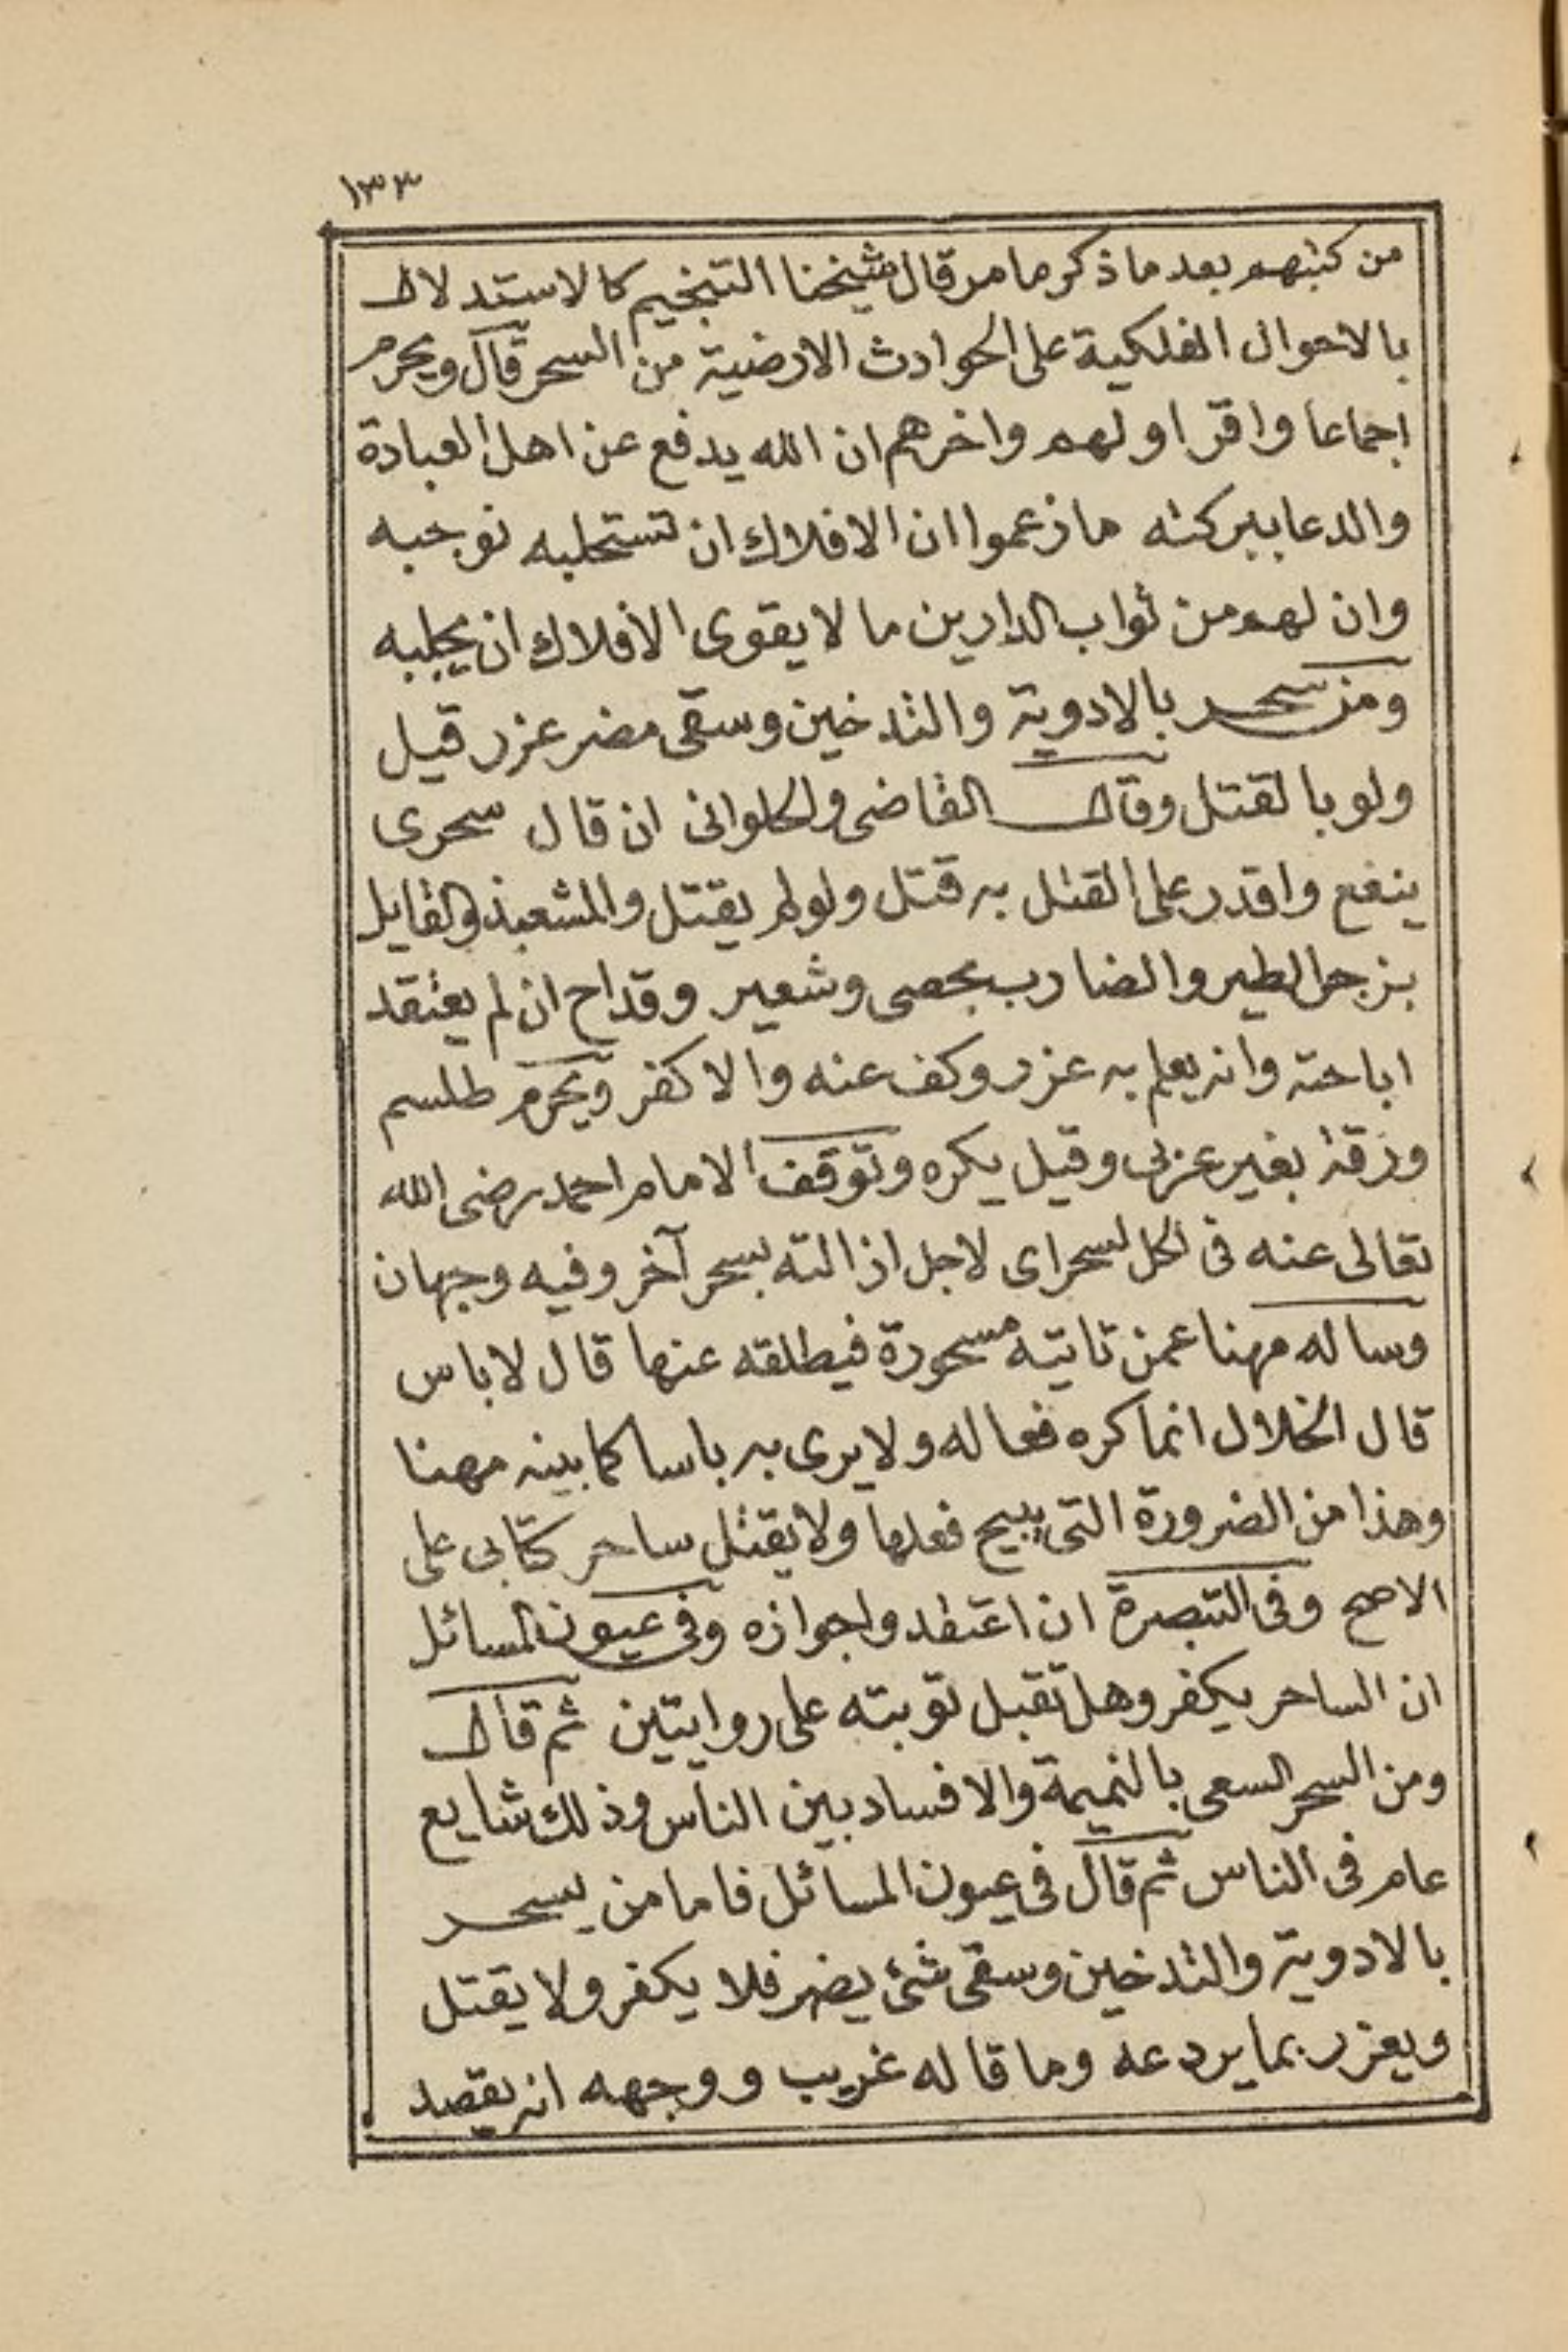 ١٣٣
من كتبهم بعد ما ذكر ما مر قال شيخنا التنجيم كالاستدلال
بالاحوال الفلكية على الحوادث الارضية من السحر قال ويحرم
اجماعا واقر اولهم واخرهم ان الله يدفع عن اهل العبادة
والدعا ببركته ما زعموا ان الافلاك ان تستجلبه توجبه
وان لهم من ثواب الدارين ما لا يقوى الافلاك ان يجلبه
ومن سحر بالادوية والتدخين وسقى مضر عزر قيل
ولو بالقتل وقال القاضى والحلوانى ان قال سحرى
ينفع واقدر على القتل به قتل ولو لم يقتل والمشعبذ والقايل
بزجر الطير والضارب بحصى وشعير وقداح ان لم يعتقد
اباحته وانه يعلم به عزر وكف عنه والا كفر ويحرم طلسم
ورقية بغير عربى وقيل يكره وتوقف الامام احمد رضى الله
تعالى عنه فى الحل لسحر اى لاجل ازالته بسحر آخر وفيه وجهان
وساله مهنا عمن تاتيه مسحورة فيطلقه عنها قال لا باس
قال الخلال انما كره فعاله ولا يرى به باسا كما بينه مهنا
وهذا من الضرورة التى يبيح فعلها ولا يقتل ساحر كتابى على
الاصح وفى التبصرة ان اعتقدوا جوازه وفى عيون المسائل
ان الساحر يكفر وهل تقبل توبته على روايتين ثم قال
ومن السحر السعى بالنميمة والافساد بين الناس وذلك شايع
عام فى الناس ثم قال فى عيون المسائل فاما من يسحر
بالادوية والتدخين وسقى شئ يضر فلا يكفر ولا يقتل
ويعزر بما يردعه وما قاله غريب ووجهه انه يقصد